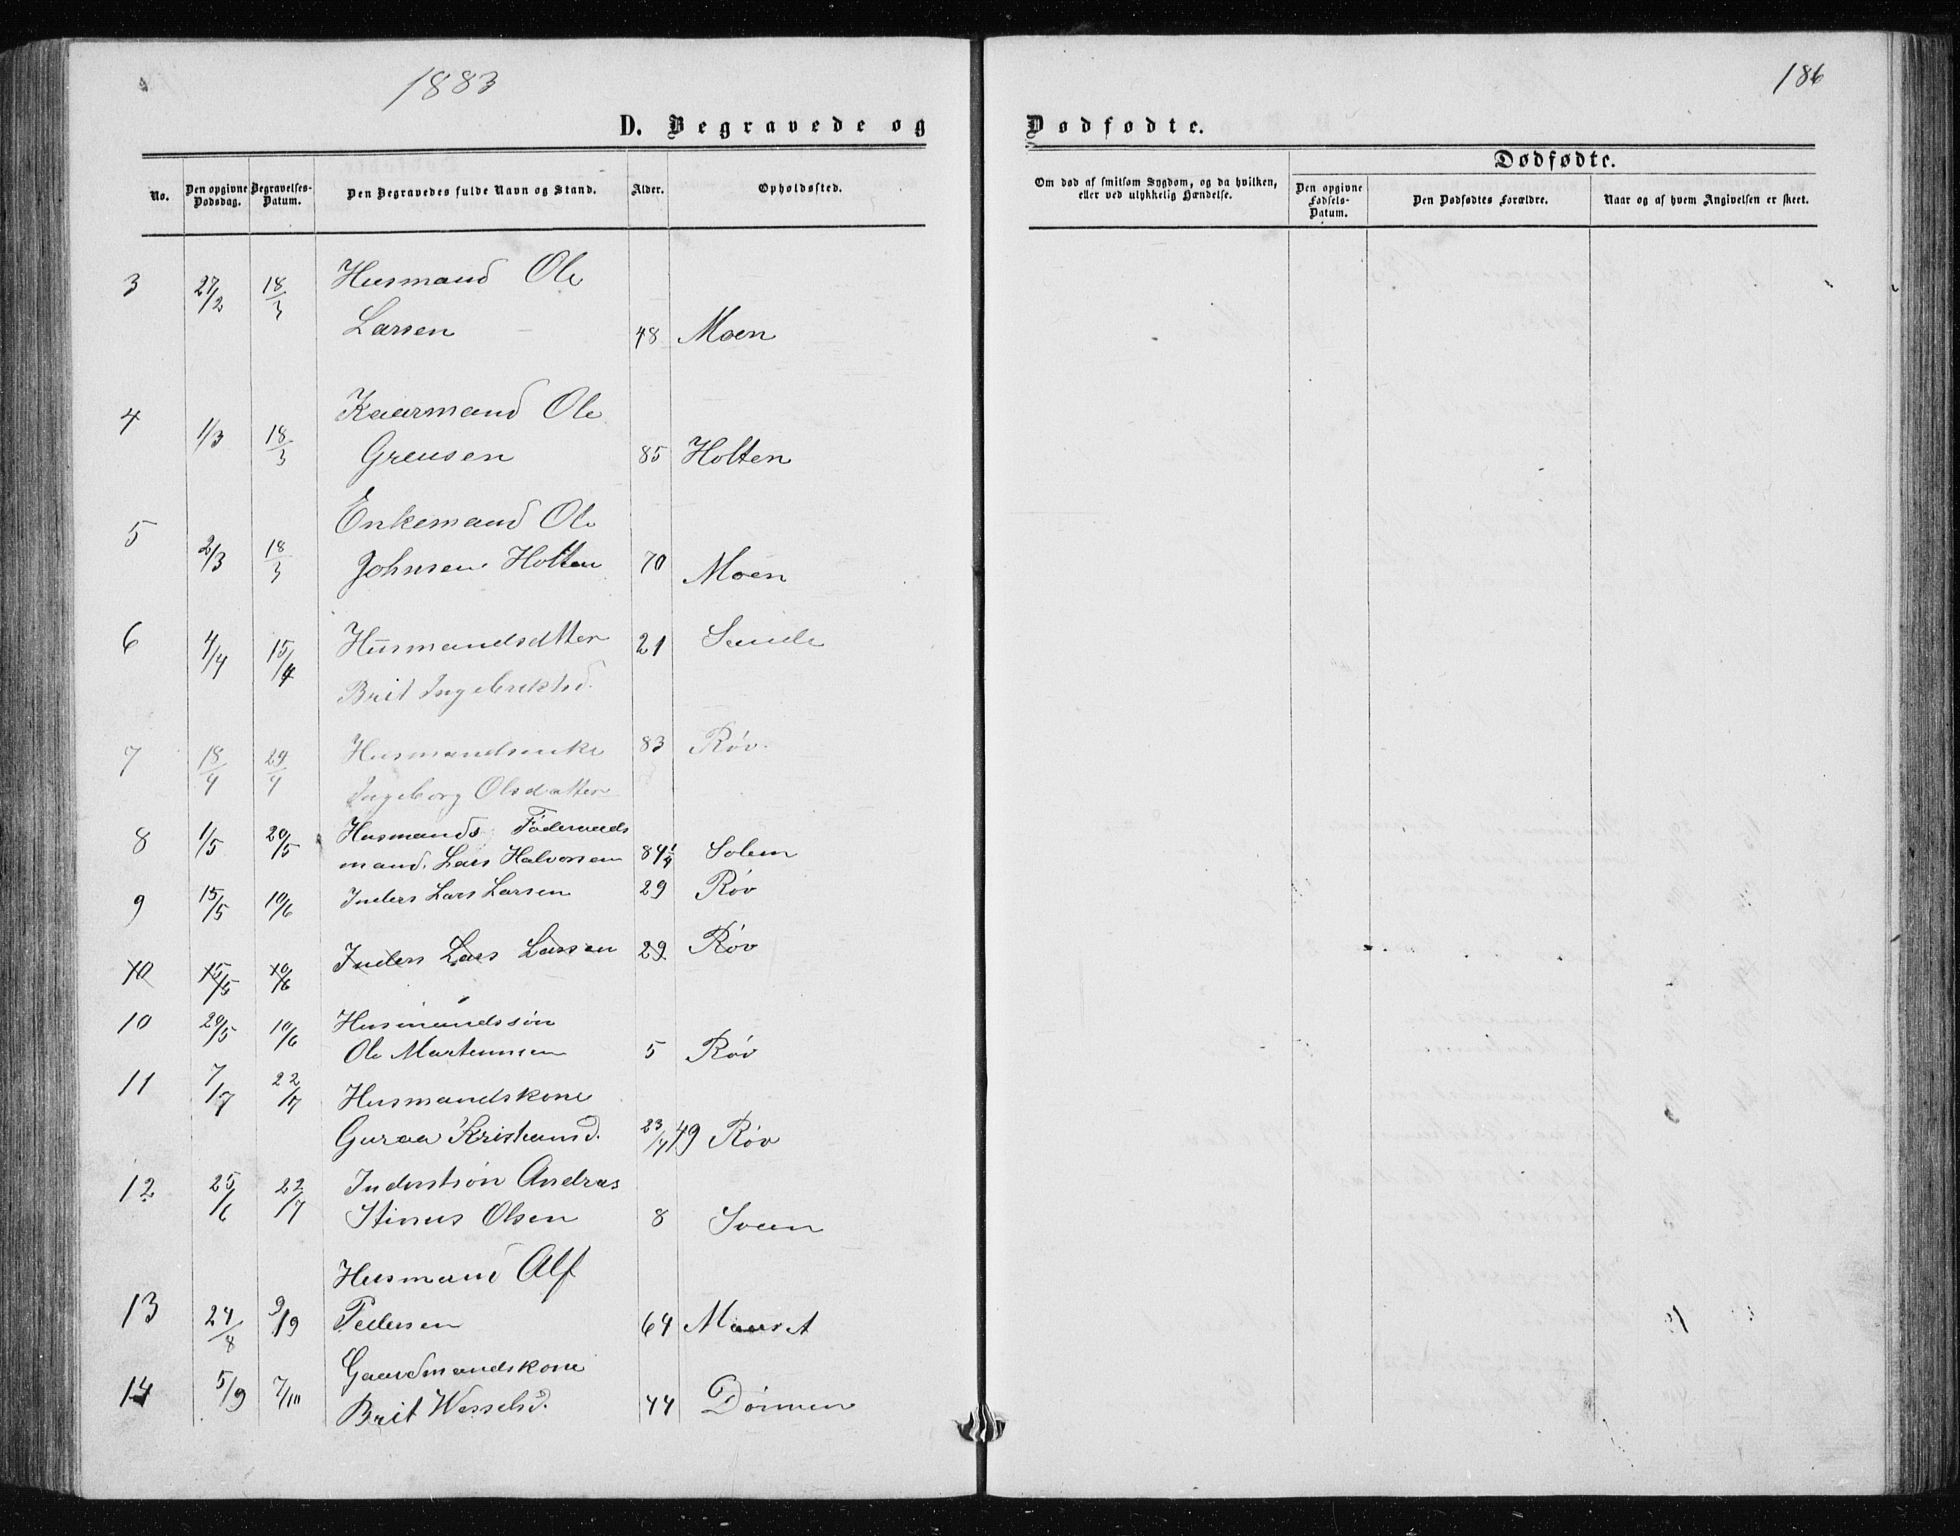 1883
186
D. Begravede og Dødfødte.
No.
Den opgivne Dødsdag.
Begravelses-Datum.
Den Begravedes fulde Navn og Stand.
Alder.
Opholdssted.
Om død af smitsom Sygdom, og da hvilken, eller ved ulykkelig Hændelse.
Dødfødte.
Den opgivne Fødsels-Datum.
Den Dødfødtes Forældre.
Naar og af hvem Angivelsen er skeet.
3 27/2 18/3 Husmand Ole
Larsen 48 Moen
4 1/3 18/3 Kaarmand Ole
Greusen 85 Holten
5 2/3 18/3 Enkemand Ole
Johnsen Holten 70 Moen
6 4/4 15/4 Husmandsdtter 21 Sande
Brit Ingebrektsd.
7 18/4 29/4 Husmandsenke 83 Røv.
Ingeborg Olsdatter
8 1/5 20/5 Husmands Føderaads
mand. Lars Halvorsen 84 1/4 Solem
9 15/5 10/6 Inders Lars Larsen 29 Røv
10 15/5 10/6 Inders Lars Larsen 29. Røv
10 20/5 10/6 Husmandssøn
Ole Martinusen 5 Røv
11 7/7 22/7 Husmandskone
Guraa Kristiansd. 23/4 49 Røv
12 25/6 22/7 Inderstsøn Andreas
Stinus Olsen 8 Sveen
13 24/8 9/9 Husmand Alf
Pedersen 64 Mauset
14 5/9 7/10 Gaardmandskone
Brit Wesselsd. 44 Dønnen